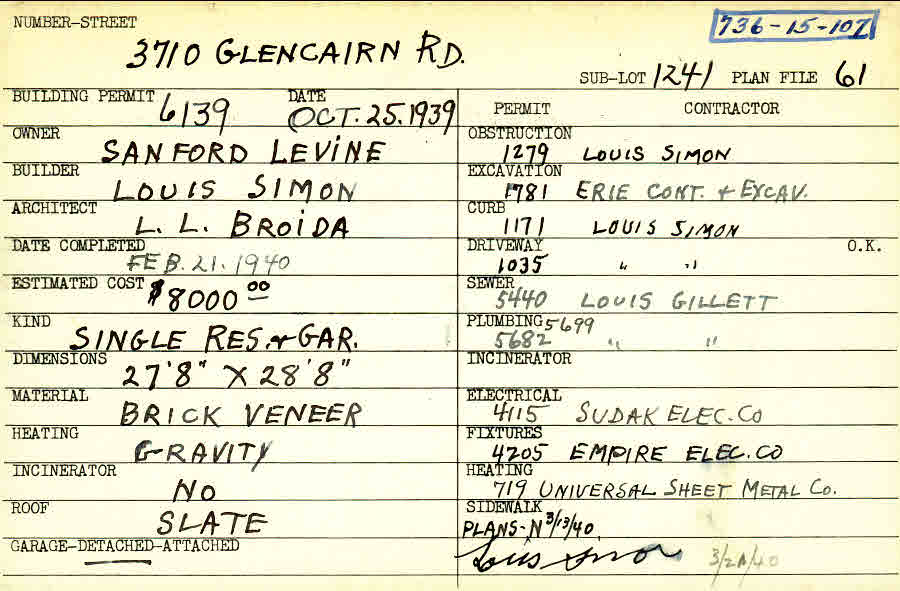 736-15-107
NUMBER-STREET
3710 GLENCAIRN RD.
SUB-LOT 1241 PLAN FILE 61
BUILDING PERMIT 6139 DATE OCT. 25. 1939
OWNER SANFORD LEVINE
BUILDER LOUIS SIMON
ARCHITECT L. L. BROIDA
DATE COMPLETED FEB. 21. 1940
ESTIMATED COST $8000 00
KIND SINGLE RES. + GAR.
DIMENSIONS 27'8" X 28'8"
MATERIAL BRICK VENEER
HEATING GRAVITY
INCINERATOR NO
ROOF SLATE
GARAGE-DETACHED-ATTACHED
PERMIT CONTRACTOR
OBSTRUCTION 1279 LOUIS SIMON
EXCAVATION 1781 ERIE CONT. + EXCAV.
CURB 1171 LOUIS SIMON
DRIVEWAY O.K.
1035 " "
SEWER 5440 LOUIS GILLETT
PLUMBING 5699
5682 " "
INCINERATOR
ELECTRICAL 4115 SUDAK ELEC. CO
FIXTURES 4205 EMPIRE ELEC. CO
HEATING 719 UNIVERSAL SHEET METAL CO.
SIDEWALK
PLANS-N 3/13/40
Louis Simon